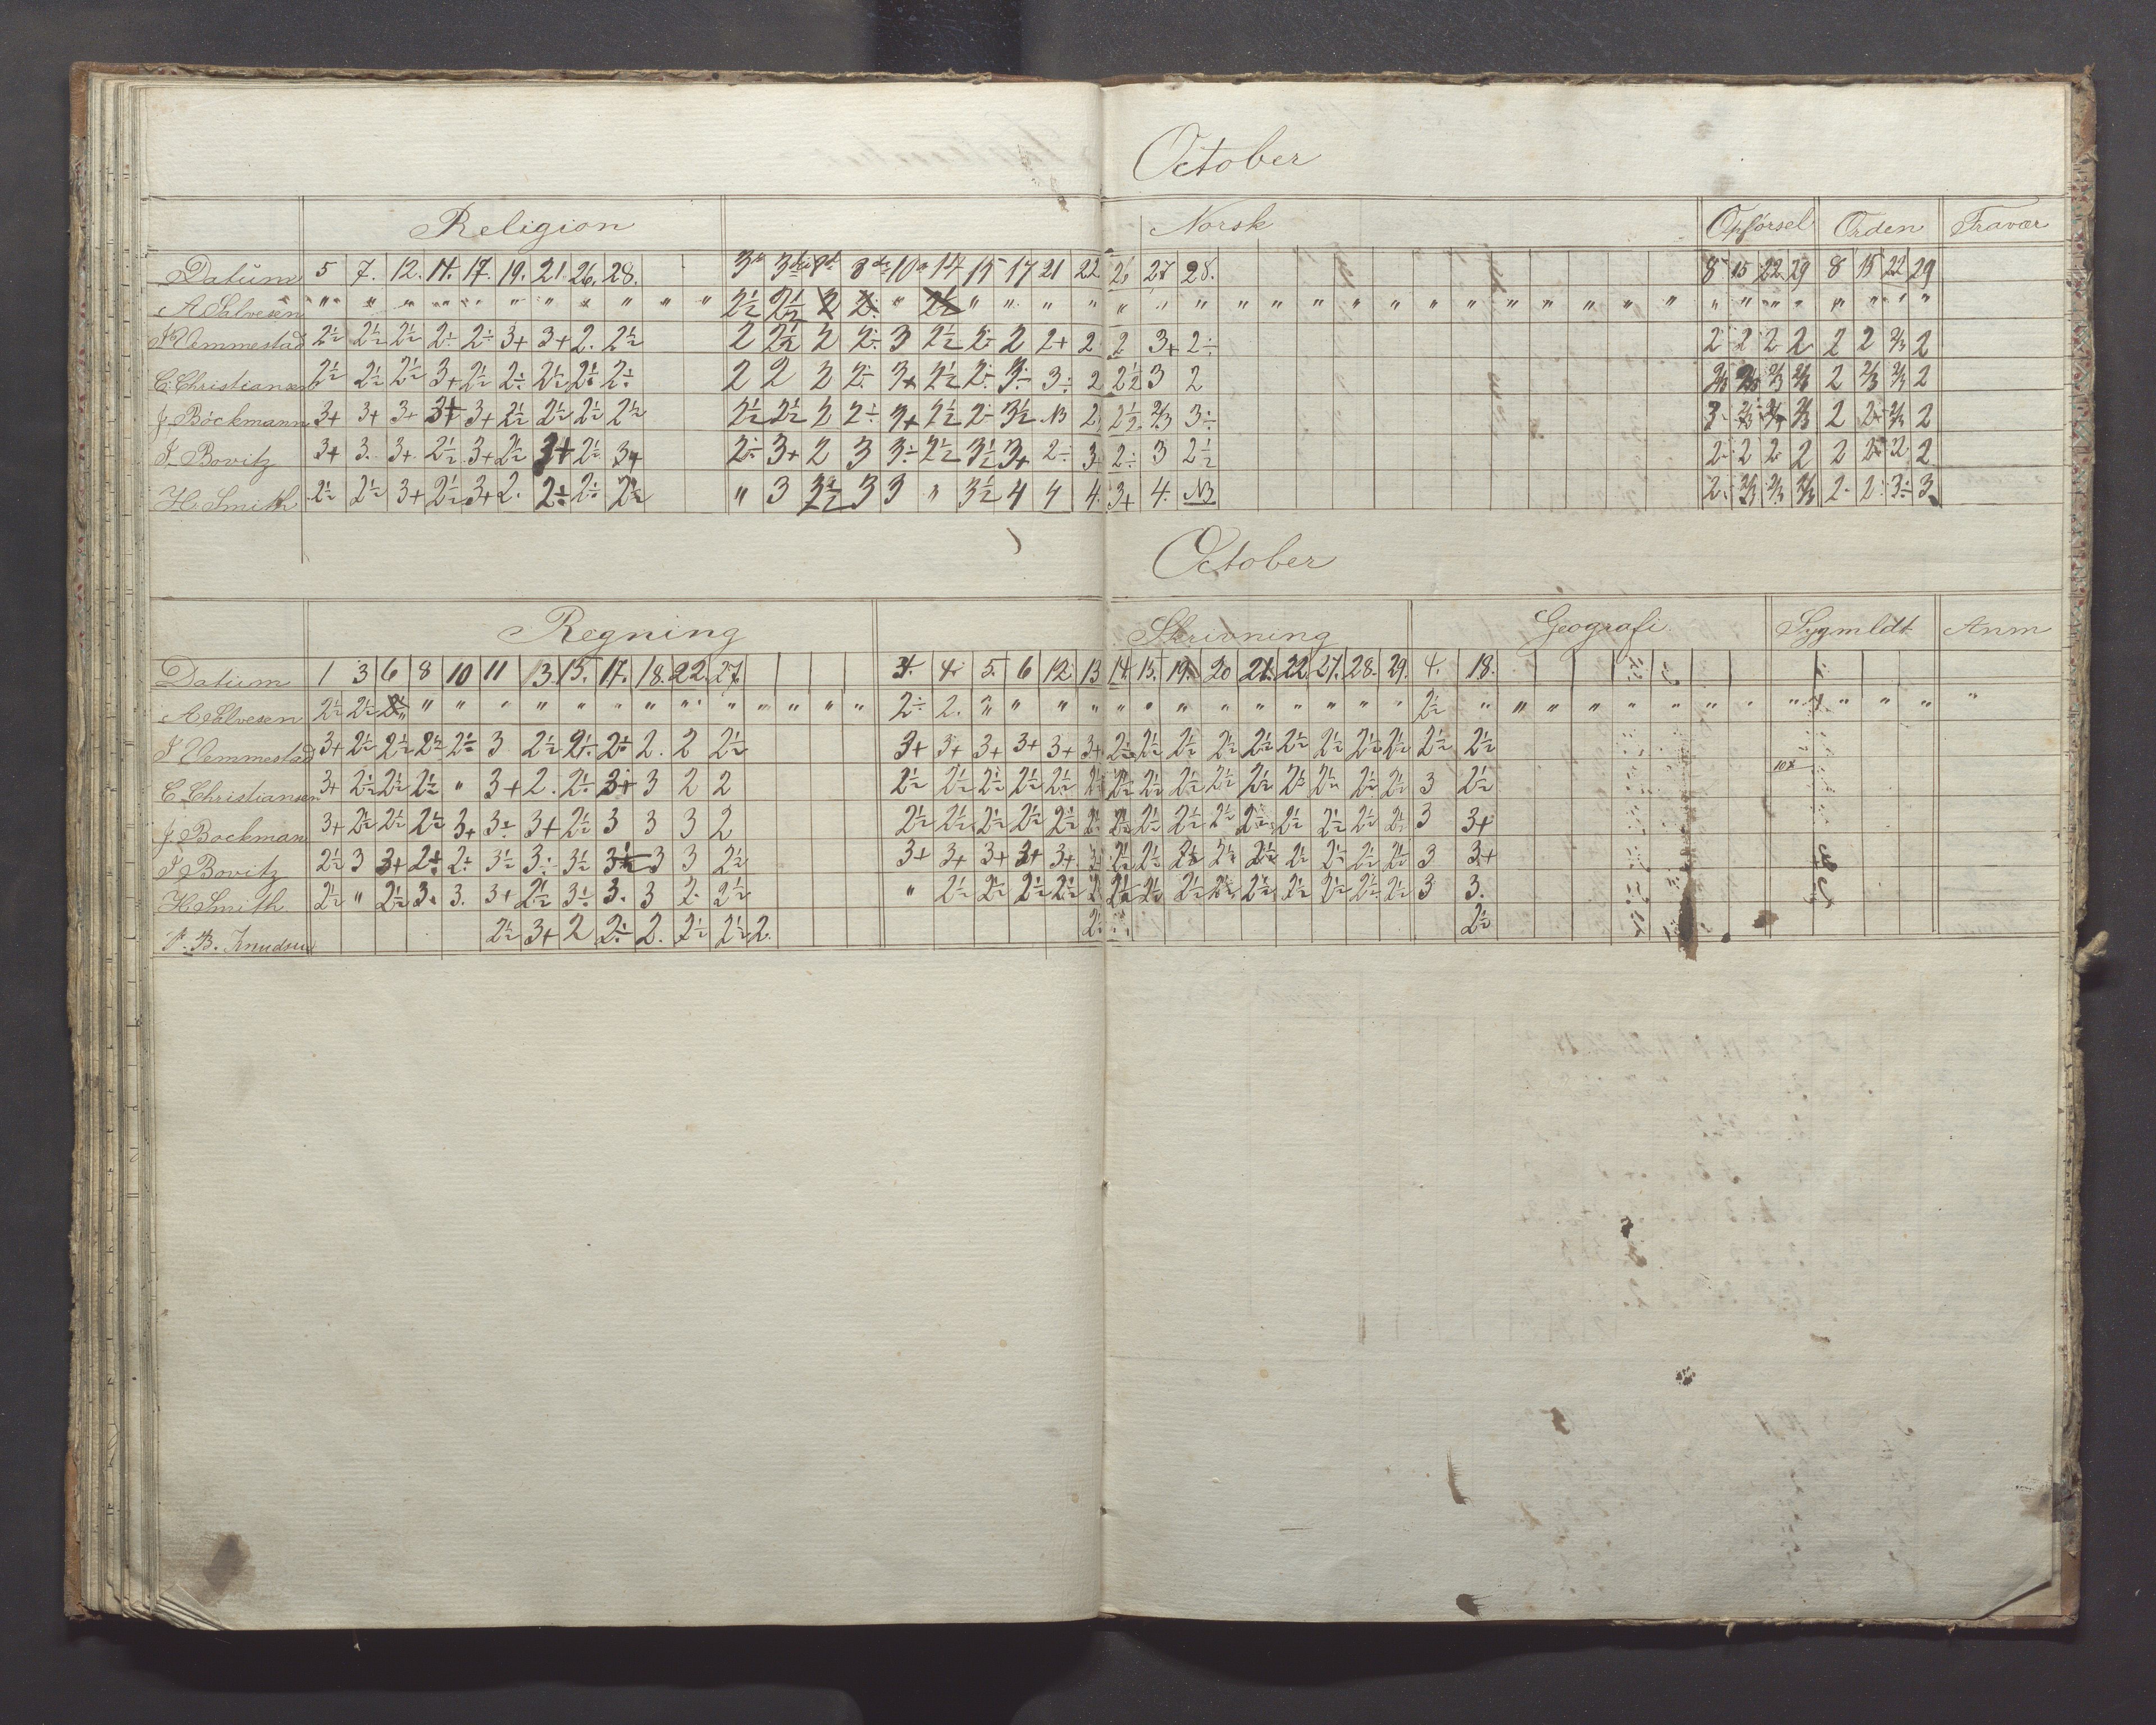 October
Religion Norsk Opförsel Orden Fravær
Datum 5 7. 12. 14. 17. 19. 21. 26. 28. 10 14 15 17 21 22 26 27 28. 8 15 22 29 8 15 22 29
A Salvesen " " " " " " " " " " " " 2½ 2½ 2 2÷ " 2½ " " " " " " " " " " " " " " " " " " " " " " " " " " " "
Vemmestad 2½ 2½ 2½ 2÷ 2÷ 3+ 3+ 2. 2½ 2 2½ 2 2÷ 3 2½ 2÷ 2 2+ 2 2 3+ 2÷ 2 2 2 2 2 2 2/3 2
C. Christiansen 2½ 2½ 2½ 3+ 2½ 2÷ 2½ 2½ 2÷ 2 2 2 2÷ 3+ 2½ 2÷ 3÷ 3÷ 2 2½ 3 2 2/3 2/3 2/3 2/3 2 2/3 2/3 2
J Böckmann 3+ 3+ 3+ 3+ 3+ 2½ 2½ 2½ 2½ 2½ 2½ 2 2÷ 3+ 2½ 2÷ 3½ N3 2 2½ 2/3 3÷ 3 2/3 2/3 2/3 2 2 2/3 2
J. Bovitz 3+ 3. 3+. 2½ 3+ 2½ 3+ 2½ 3+ 2÷ 3+ 2 3 3÷ 2½ 3½ 3+ 2÷ 3 2÷ 3 2½ 2 2 2 2 2 2 2 2
H. Smith 2½ 2½ 3+ 2½ 3+ 2. 2÷ 2÷ 2½ " 3 3½ 3 3 " 3½ 4 4 4. 3+ 4. N3 2. 2/3 2/3 2/3 2 2 3÷ 3
October
Regning Skrivning Geografi. Sygmldt Anm
Datum 1 3 6 8 10 11 13. 15. 17. 18. 22. 27. 3. 4. 5. 6 12. 13 14. 15. 19. 20 21. 22. 27. 28. 29. 4. 18.
A Salvesen 2½ 2½ " " " " " " " " " " " " " 2÷ 2. " " " " " " " " " " " " " 2½ " " " " " " " " " " " " " "
J Vemmestad 3+ 2½ 2½ 2½ 2½ 3 2½ 2½ 2÷ 2. 2 2½ 3+ 3+ 3+ 3+ 3+ 3+ 2½ 2½ 2½ 2½ 2½ 2½ 2½ 2½ 2½ 2½ 2½
C Christiansen 3+ 2½ 2½ 2½ " 3+ 2. 2½ 3+ 3 2 2 2½ 2½ 2½ 2½ 2½ 2½ 2½ 2½ 2½ 2½ 2½ 2½ 2½ 2½ 2½ 3 2½
J Bockman 3+ 2½ 2½ 2½ 3+ 3÷ 3+ 2½ 3 3 3 2 2½ 2½ 2½ 2½ 2½ 2½ 2½ 2½ 2½ 2½ 2½ 2½ 2½ 2½ 2½ 3 3+
J Bovitz 2½ 3 3+ 2÷ 2÷ 3½ 3÷ 3½ 3½ 3 3 2½ 3+ 3+ 3+ 3+ 3+ 3 2½ 2½ 2½ 2½ 2½ 2½ 2½ 2½ 2½ 3 3+
H. Smith 2½ " 2½ 3. 3. 3+ 2½ 3½ 3. 3 2. 2½ " 2½ 2½ 2½ 2½ 2 2½ 2½ 2½ 2½ 2½ 2½ 2½ 2½ 2½ 3 3.
P. B. Knudsen 2½ 3+ 2 2÷ 2. 2½ 2½ 2. 2½